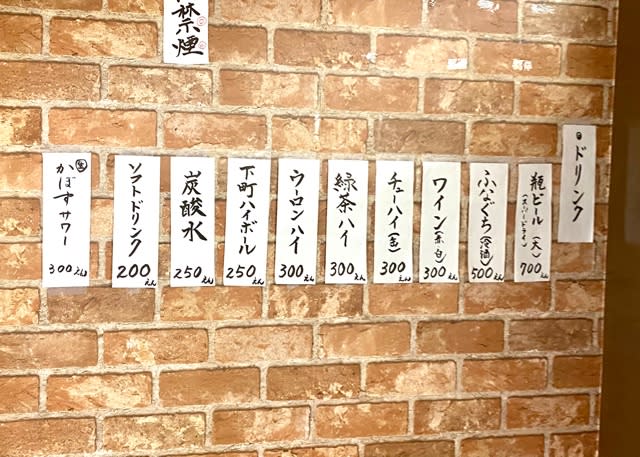 禁煙
ドリンク
瓶ビール(大)
(スーパードライ)
700えん
ふなぐち(冷酒)
500えん
ワイン(赤、白)
300えん
チューハイ
300えん
緑茶ハイ
300えん
ウーロンハイ
300えん
下町ハイボール
250えん
炭酸水
250えん
ソフトドリンク
200えん
生
かぼすサワー
300えん